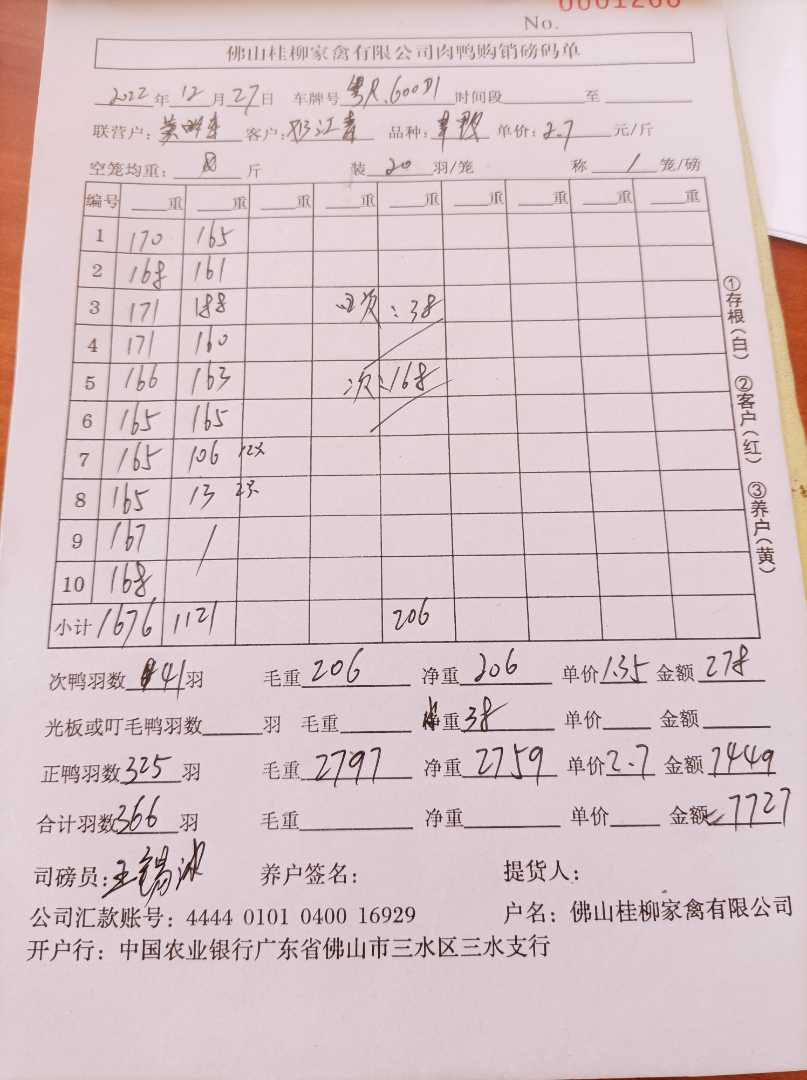 No. 0001266
佛山桂柳家禽有限公司肉鸭购销磅码单
2022年12月27日 车牌号 粤R.600D1 时间段 至
联营户： 客户： 品种： 单价：2.7 元/斤
空笼均重： 斤 装 20 羽/笼 称 1 笼/磅
编号 重 重 重 重 重 重 重 重 重
1 170 165
2 168 161
3 171 188 次：38
4 171 160
5 166 163 次：168
6 165 165
7 165 106 12只
8 165 13 2只
9 167 /
10 168
小计 1676 1121 206
次鸭羽数 41羽 毛重 206 净重 206 单价 1.35 金额 278
光板或叮毛鸭羽数 羽 毛重 净重 38 单价 金额
正鸭羽数 325 羽 毛重 2797 净重 2759 单价 2.7 金额 7449
合计羽数 366 羽 毛重 净重 单价 金额 7727
司磅员：王锡冰 养户签名： 提货人：
公司汇款账号：4444 0101 0400 16929 户名：佛山桂柳家禽有限公司
开户行：中国农业银行广东省佛山市三水区三水支行
①存根（白） ②客户（红） ③养户（黄）